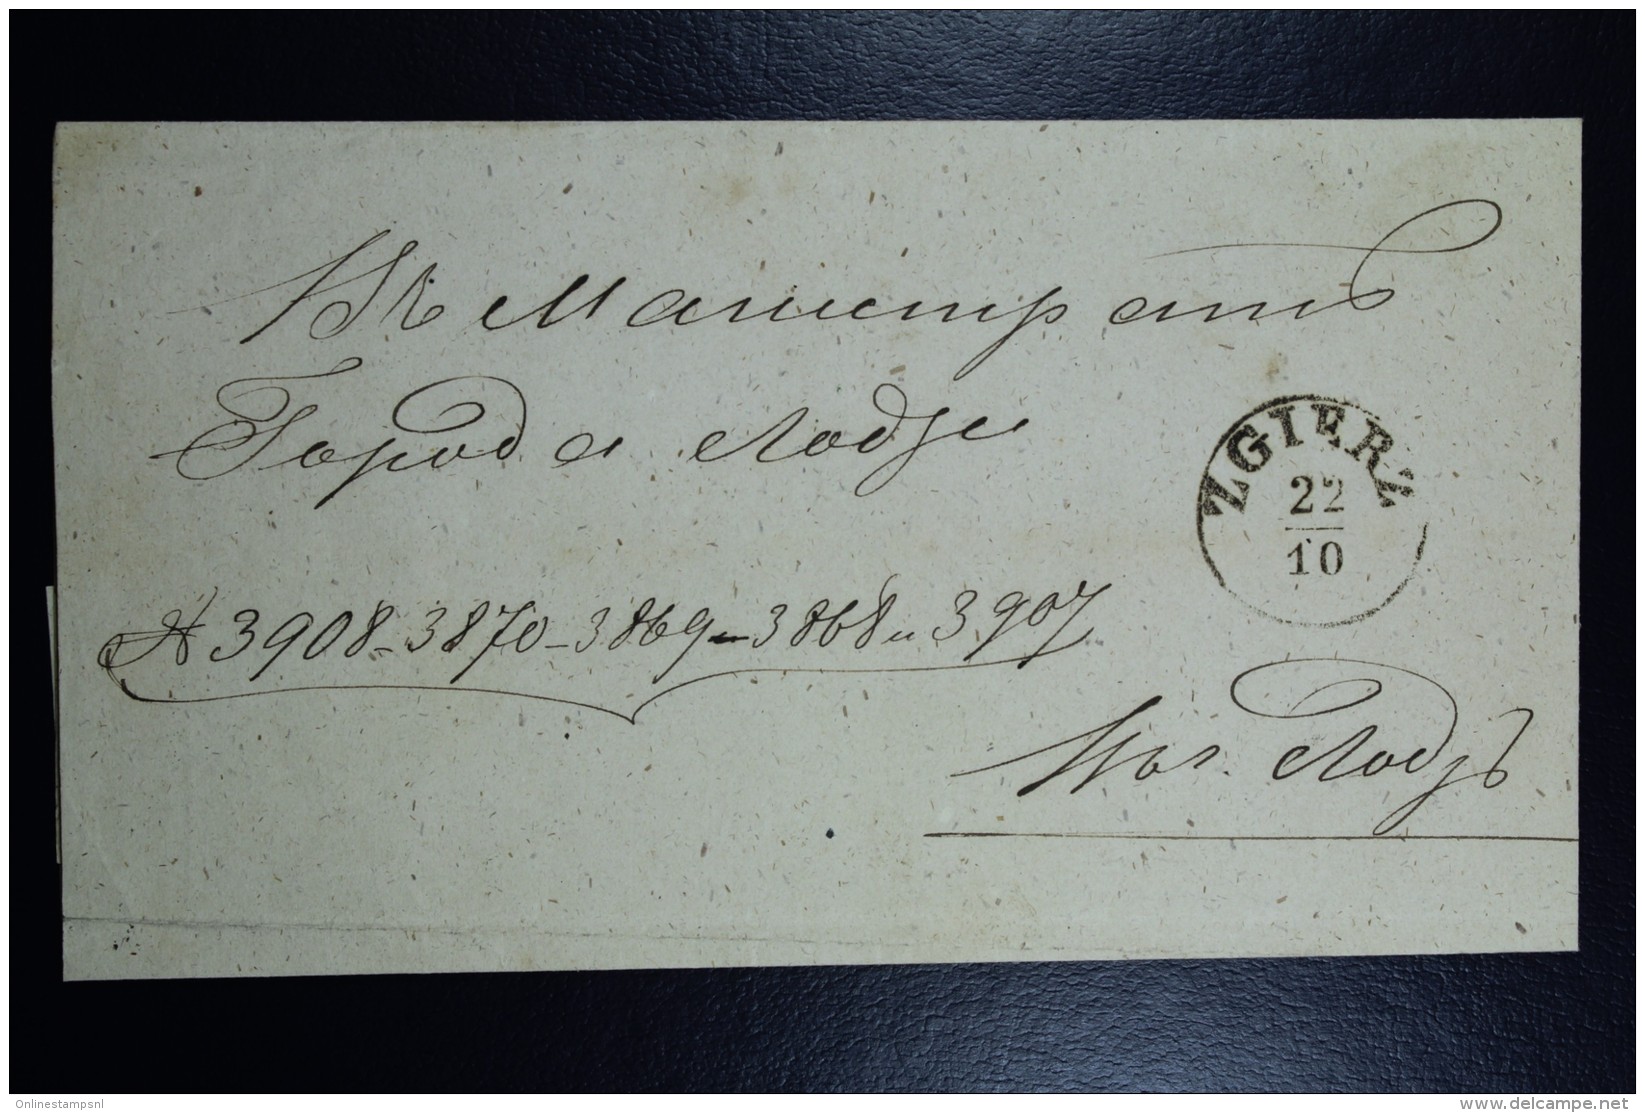 Въ Магистратъ
Города Лодзи
ZGIERZ
22
10
№ 3908-3870-3869-3868 и 3907
Лодзь
Onlinestampsnl
www.delcampe.net